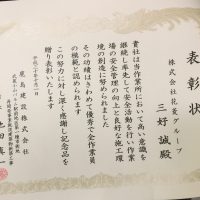 表彰状
株式会社花菱グループ
三好誠殿
貴社は当作業所において高い意識を
継続し率先して安全活動を行い作業
場の安全管理の向上と良好な施工環
境の創造に努められました
その功績はきわめて優秀で全作業員
の模範と認められます
この努力に対し深く感謝し記念品を
贈り表彰いたします
平成三十年十月一日
鹿島建設株式会社